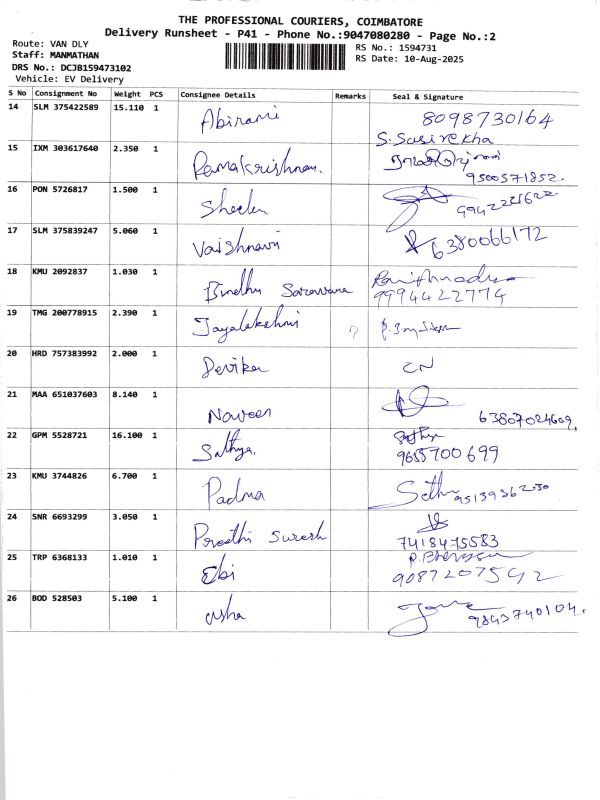 THE PROFESSIONAL COURIERS, COIMBATORE
Delivery Runsheet - P41 - Phone No.:9047080280 - Page No.:2
Route: VAN DLY
Staff: MANMATHAN
DRS No.: DCJB159473102
Vehicle: EV Delivery
RS No.: 1594731
RS Date: 10-Aug-2025
S No Consignment No Weight PCS Consignee Details Remarks Seal & Signature
14 SLM 375422589 15.110 1 Abirami 8098730164
S. Sasirekha
15 IXM 303617640 2.350 1 Ramakrishnan.
9500571852.
16 PON 5726817 1.500 1 Sheela
17 SLM 375839247 5.060 1 Vaishnavi 6380066172
18 KMU 2092837 1.030 1 Bindhu Saravana
9994422774
19 TMG 200778915 2.390 1 Jayalakshmi ?
20 HRD 757383992 2.000 1 Devika CN
21 MAA 651037603 8.140 1 Naveen 63807024609.
22 GPM 5528721 16.100 1 Sathya. Sathya
9655700699
23 KMU 3744826 6.700 1 Padma
24 SNR 6693299 3.050 1 Preethi Suresh
7418475583
25 TRP 6368133 1.010 1 Ebi
9087207592
26 BOD 528503 5.100 1 Usha
9843740104.